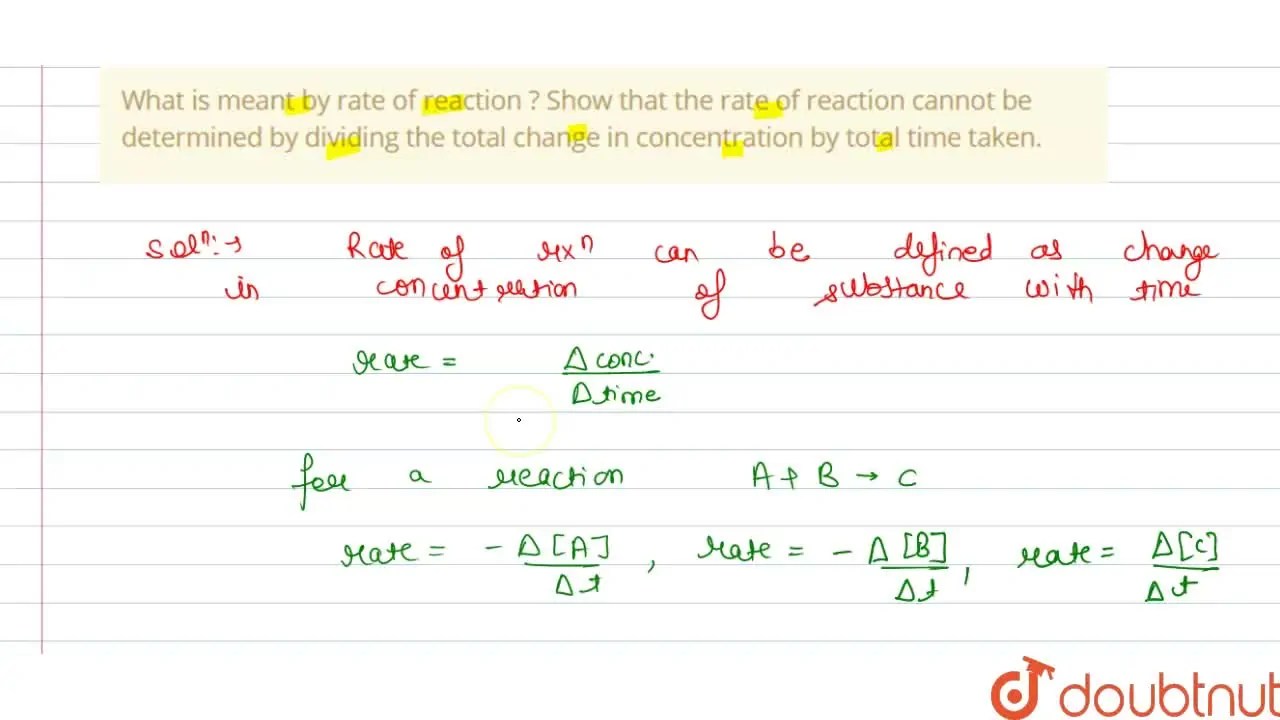 What is meant by rate of reaction ? Show that the rate of reaction cannot be
determined by dividing the total change in concentration by total time taken.
Solⁿ:→ Rate of rxⁿ can be defined as change
in concentration of substance with time
rate = Δconc. / Δtime
for a reaction A + B → C
rate = - Δ[A] / Δt , rate = - Δ[B] / Δt , rate = Δ[C] / Δt
doubtnut